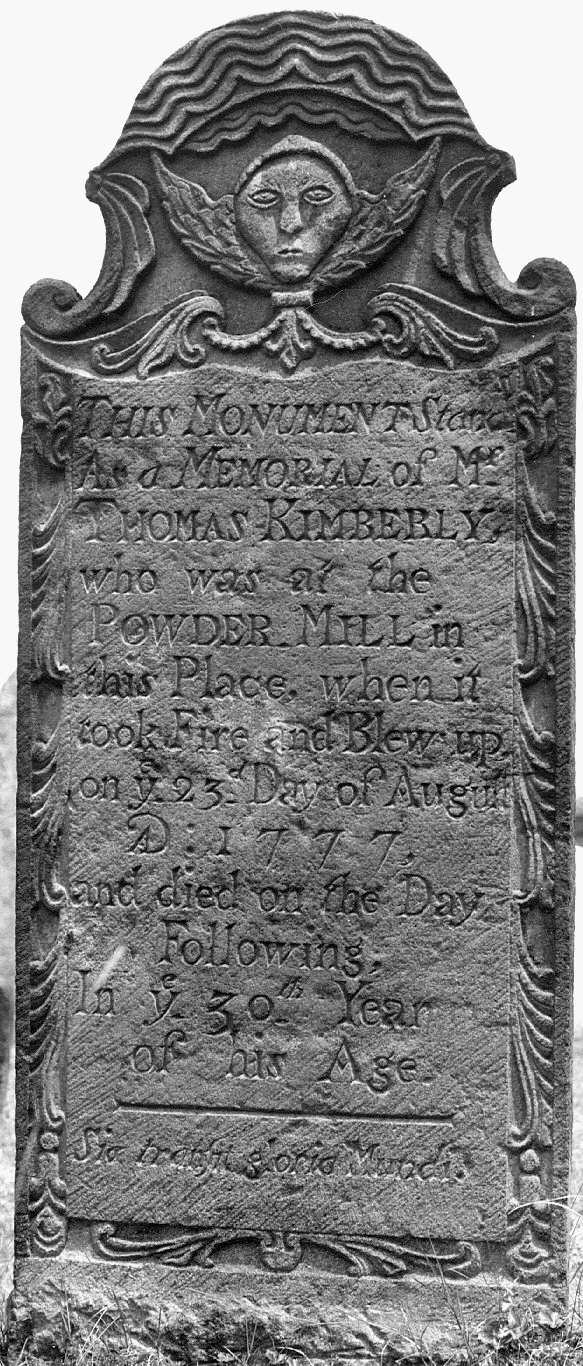 THIS MONUMENT Stands
As a MEMORIAL of Mr.
THOMAS KIMBERLY,
who was at the
POWDER MILL in
this Place, when it
took Fire and Blew up
on ye 23d Day of Auguſt
AD : 1777,
and died on the Day
Following,
In ye 30th Year
of his Age.
Sic tranſit gloria Mundi.